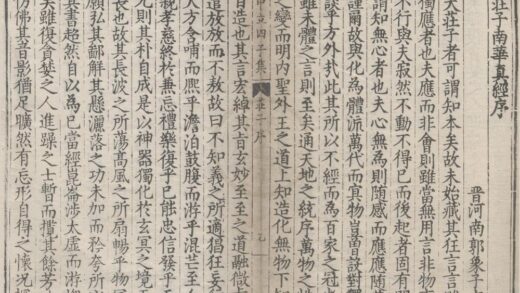 莊子南華真經序
晉河南郭象子
夫莊子者可謂知本矣故未始藏其狂言言
獨應者也夫應而非會則雖當無用言非物
不行與夫寂然不動不得已而後起者固有
謂知無心者也夫心無為則隨感而應應隨
謹爾故與化為體流萬代而冥物豈曾設對
談乎方外哉此其所以不經而為百家之冠
雖未體之言則至矣通天地之統序萬物之
之變而明內聖外王之道上知造化無物下
中立四子集 莊子序
自造也其言宏綽其旨玄妙至至之道融微
遣放放而不敖故曰不知義之所適猖狂妄
大方含哺而熈乎澹泊鼓腹而游乎混芒至
親孝慈終於兼忘禮樂復乎已能忠信發乎
光則其朴自成是以神器獨化於玄冥之境
長也故其長波之所蕩高風之所扇暢乎物
願弘其鄙解其懸灑落之功未加而矜夸所
其書超然自以為已當經崑崙涉太虛而游
矣雖復貪婪之人進躁之士暫而攬其餘芳
彷彿其音影猶足曠然有忘形自得之懷況